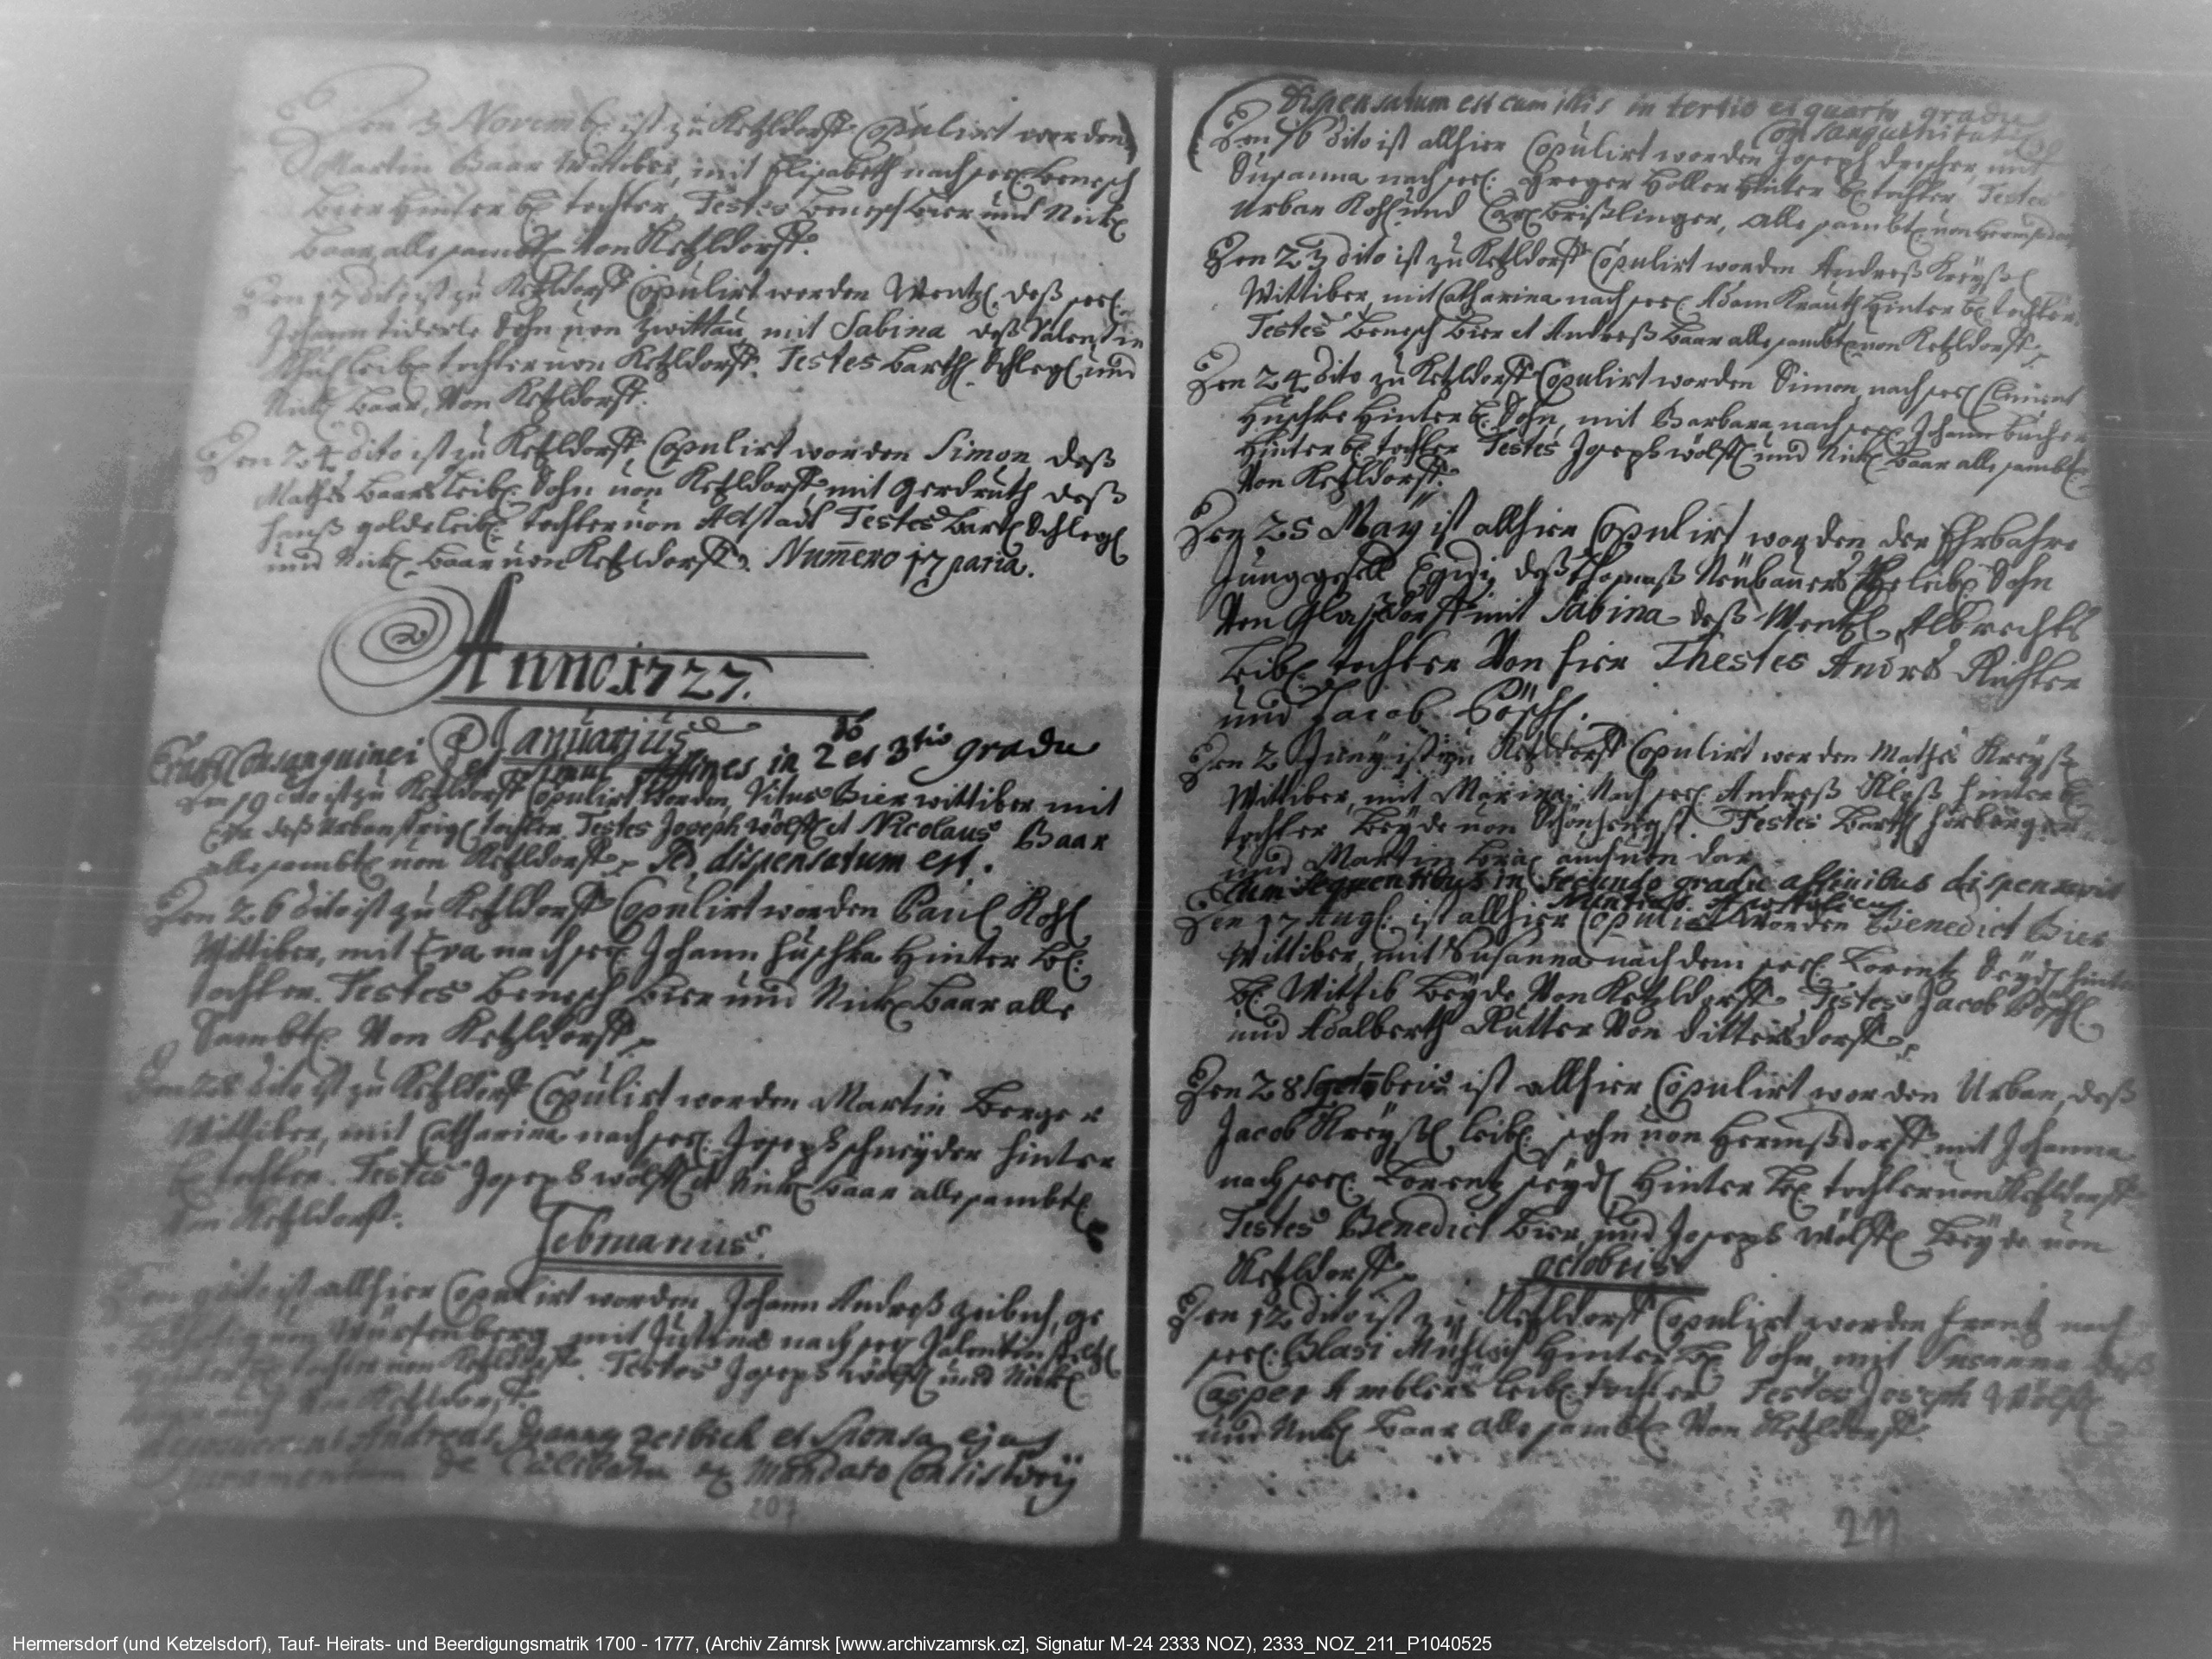 Den 3 Novemb: ist zu Ketzldorff Copulirt worden
Martin Baar Wittiber, mit Elisabeth nach seel: Benesch
Bier Hinter bl: tochter, Testes Benesch Bier und Nickl
Baar, alle sambtl: von Ketzldorff.
Den 17 dito ist zu Ketzldorff Copulirt worden Wentzl, deß seel:
Johann Sohn von Zwittau mit Sabina deß Valentin
leibl: tochter von Ketzldorff. Testes Barthl Schlegl und
Nickl Baar, Von Ketzldorff.
Den 24 dito ist zu Ketzldorff Copulirt worden Simon, deß
Mathes Baars leibl: Sohn von Ketzldorff, mit Gerdruth deß
Hanß leibl: tochter von Altstadt Testes Bartl Schlegl
und Nickl Baar von Ketzldorff. Numero 17 paria.
Anno 1727.
Januarius
Consanguinei et simul Affines in 2do et 3tio gradu
Den 19 dito ist zu Ketzldorff Copulirt worden, Vitus Bier wittiber mit
Eva deß Urban tochter, Testes Joseph Wölffl et Nicolaus Baar
alle sambtl: von Ketzldorff. Sed dispensatum est.
Den 26 dito ist zu Ketzldorff Copulirt worden Paul Kohl
Wittiber, mit Eva nach seel: Johann Huschka Hinter bl:
tochter. Testes Benesch Bier und Nickl Baar alle
Sambtl: Von Ketzldorff.
Den 28 dito ist zu Ketzldorff Copulirt worden Martin Berger
Wittiber, mit Catharina nach seel: Joseph schneyder hinter
bl: tochter. Testes Joseph Wölffl et Nickl Baar alle sambtl:
Von Ketzldorff.
Februarius
dito ist allhier Copulirt worden, Johann Andreß Zeibich, ge
von Würtenberg, mit Justina nach seel: Valentin
tochter von Ketzldorff. Testes Joseph Wölffl und Nickl
Baar auch Von Ketzldorff.
Andreas Zeibich et Sponsa ejus
Juramentum de Caelibatu ex Mandato Consistorij
207
Dispensatum est cum illis in tertio et quarto gradu
Consanguinitatis
Den 16 dito ist allhier Copulirt worden Joseph Drescher, mit
Susanna nach seel: Greger Holler Hinter bl: tochter, Testes
Urban Kohl und Carl Brißlinger, alle sambtl: von Hermsdorff
Den 23 dito ist zu Ketzldorff Copulirt worden Andreß Kreyßl
Wittiber, mit Catharina nach seel: Adam Krauth Hinter bl: tochter.
Testes Benesch Bier et Andreß Baar alle sambtl: von Ketzldorff.
Den 24 dito zu Ketzldorff Copulirt worden Simon, nach seel: Climent
Huschke Hinter bl: Sohn, mit Barbara nach seel: Johann Bucher
Hinter bl: tochter Testes Joseph Wölffl und Nickl Baar alle sambtl:
Von Ketzldorff.
Den 25 May ist allhier Copulirt worden der Ehrbahre
Junggesell Egidi, deß Thomaß Neubauers Ehe leibl: Sohn
Von Glaßdorff mit Sabina deß Wentzl Albrechts
leibl: tochter Von hier Thestes Andrs Richter
und Jacob Pöschl.
Den 2 Juny ist zu Ketzldorff Copulirt worden Mathes Kreyßl
Wittiber, mit Marina Nach seel: Andreß Kloß hinter bl:
tochter Beyde von Schönhengst. Testes Barthl Horberger
und Martin auch von dar.
Cum sequentibus in secundo gradu affinibus dispensavit
Nuntius Apostolicus
Den 17 Augl: ist allhier Copulirt worden Benedict Bier
Wittiber, mit Susanna nach dem seel: Lorentz Seydl hinter
bl: Wittib Beyde Von Ketzldorff. Testes Jacob Pöschl
und Adalberth Rutter Von Dittersdorff.
Den 28 Septembris ist allhier Copulirt worden Urban, deß
Jacob Kreyßl leibl: sohn von Hermßdorff mit Johanna
nach seel: Lorentz seydl Hinter bl: tochter von Ketzldorff
Testes Benedict Bier, und Joseph Wölffl Beyde von
Ketzldorff.
octobris
Den 12 dito ist zu Ketzldorff Copulirt worden Frantz nach
seel: Blasi Muhlsch Hinter bl: Sohn, mit Susanna deß
Casper Amblers leibl: tochter Testes Joseph Wölffl
und Nickl Baar alle sambtl: Von Ketzldorff.
211
Hermersdorf (und Ketzelsdorf), Tauf- Heirats- und Beerdigungsmatrik 1700 - 1777, (Archiv Zámrsk [www.archivzamrsk.cz], Signatur M-24 2333 NOZ), 2333_NOZ_211_P1040525